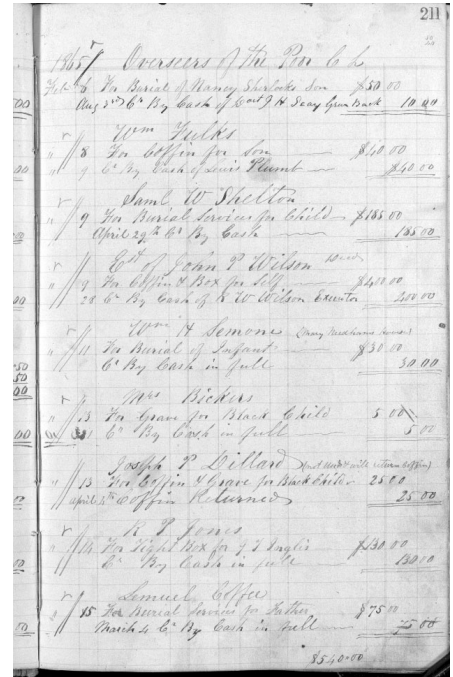 211
1865 Overseers of the Poor C L
Feb 6 For Burial of Nancy Sherlocks Son $50.00
Aug 2nd Cr By Cash of J H Seay Green Back 10.00
Wm Fulks
" 8 For Coffin for Son $40.00
" 9 Cr By Cash of Lewis Plumb $40.00
Saml W Shelton
" 9 For Burial Services for Child $185.00
April 29th Cr By Cash 185.00
Est of John P Wilson Decd
" 9 For Coffin & Box for Self $400.00
28 Cr By Cash of R W Wilson Executor 400.00
Wm H Semone
" 11 For Burial of Infant $30.00
Cr By Cash in full 30.00
Mrs Bickers
" 13 For Grave for Black Child 5.00
Cr By Cash in full 5.00
Joseph P Dillard (not used & will return coffin)
" 13 For Coffin & Grave for Black Child 25.00
April 5th Coffin Returned 25.00
R P Jones
" 14 For Tight Box for J T Inglis $130.00
Cr By Cash in full 130.00
Lemuel Coffee
" 15 For Burial Services for Father $75.00
March 4 Cr By Cash in full 75.00
$540.00